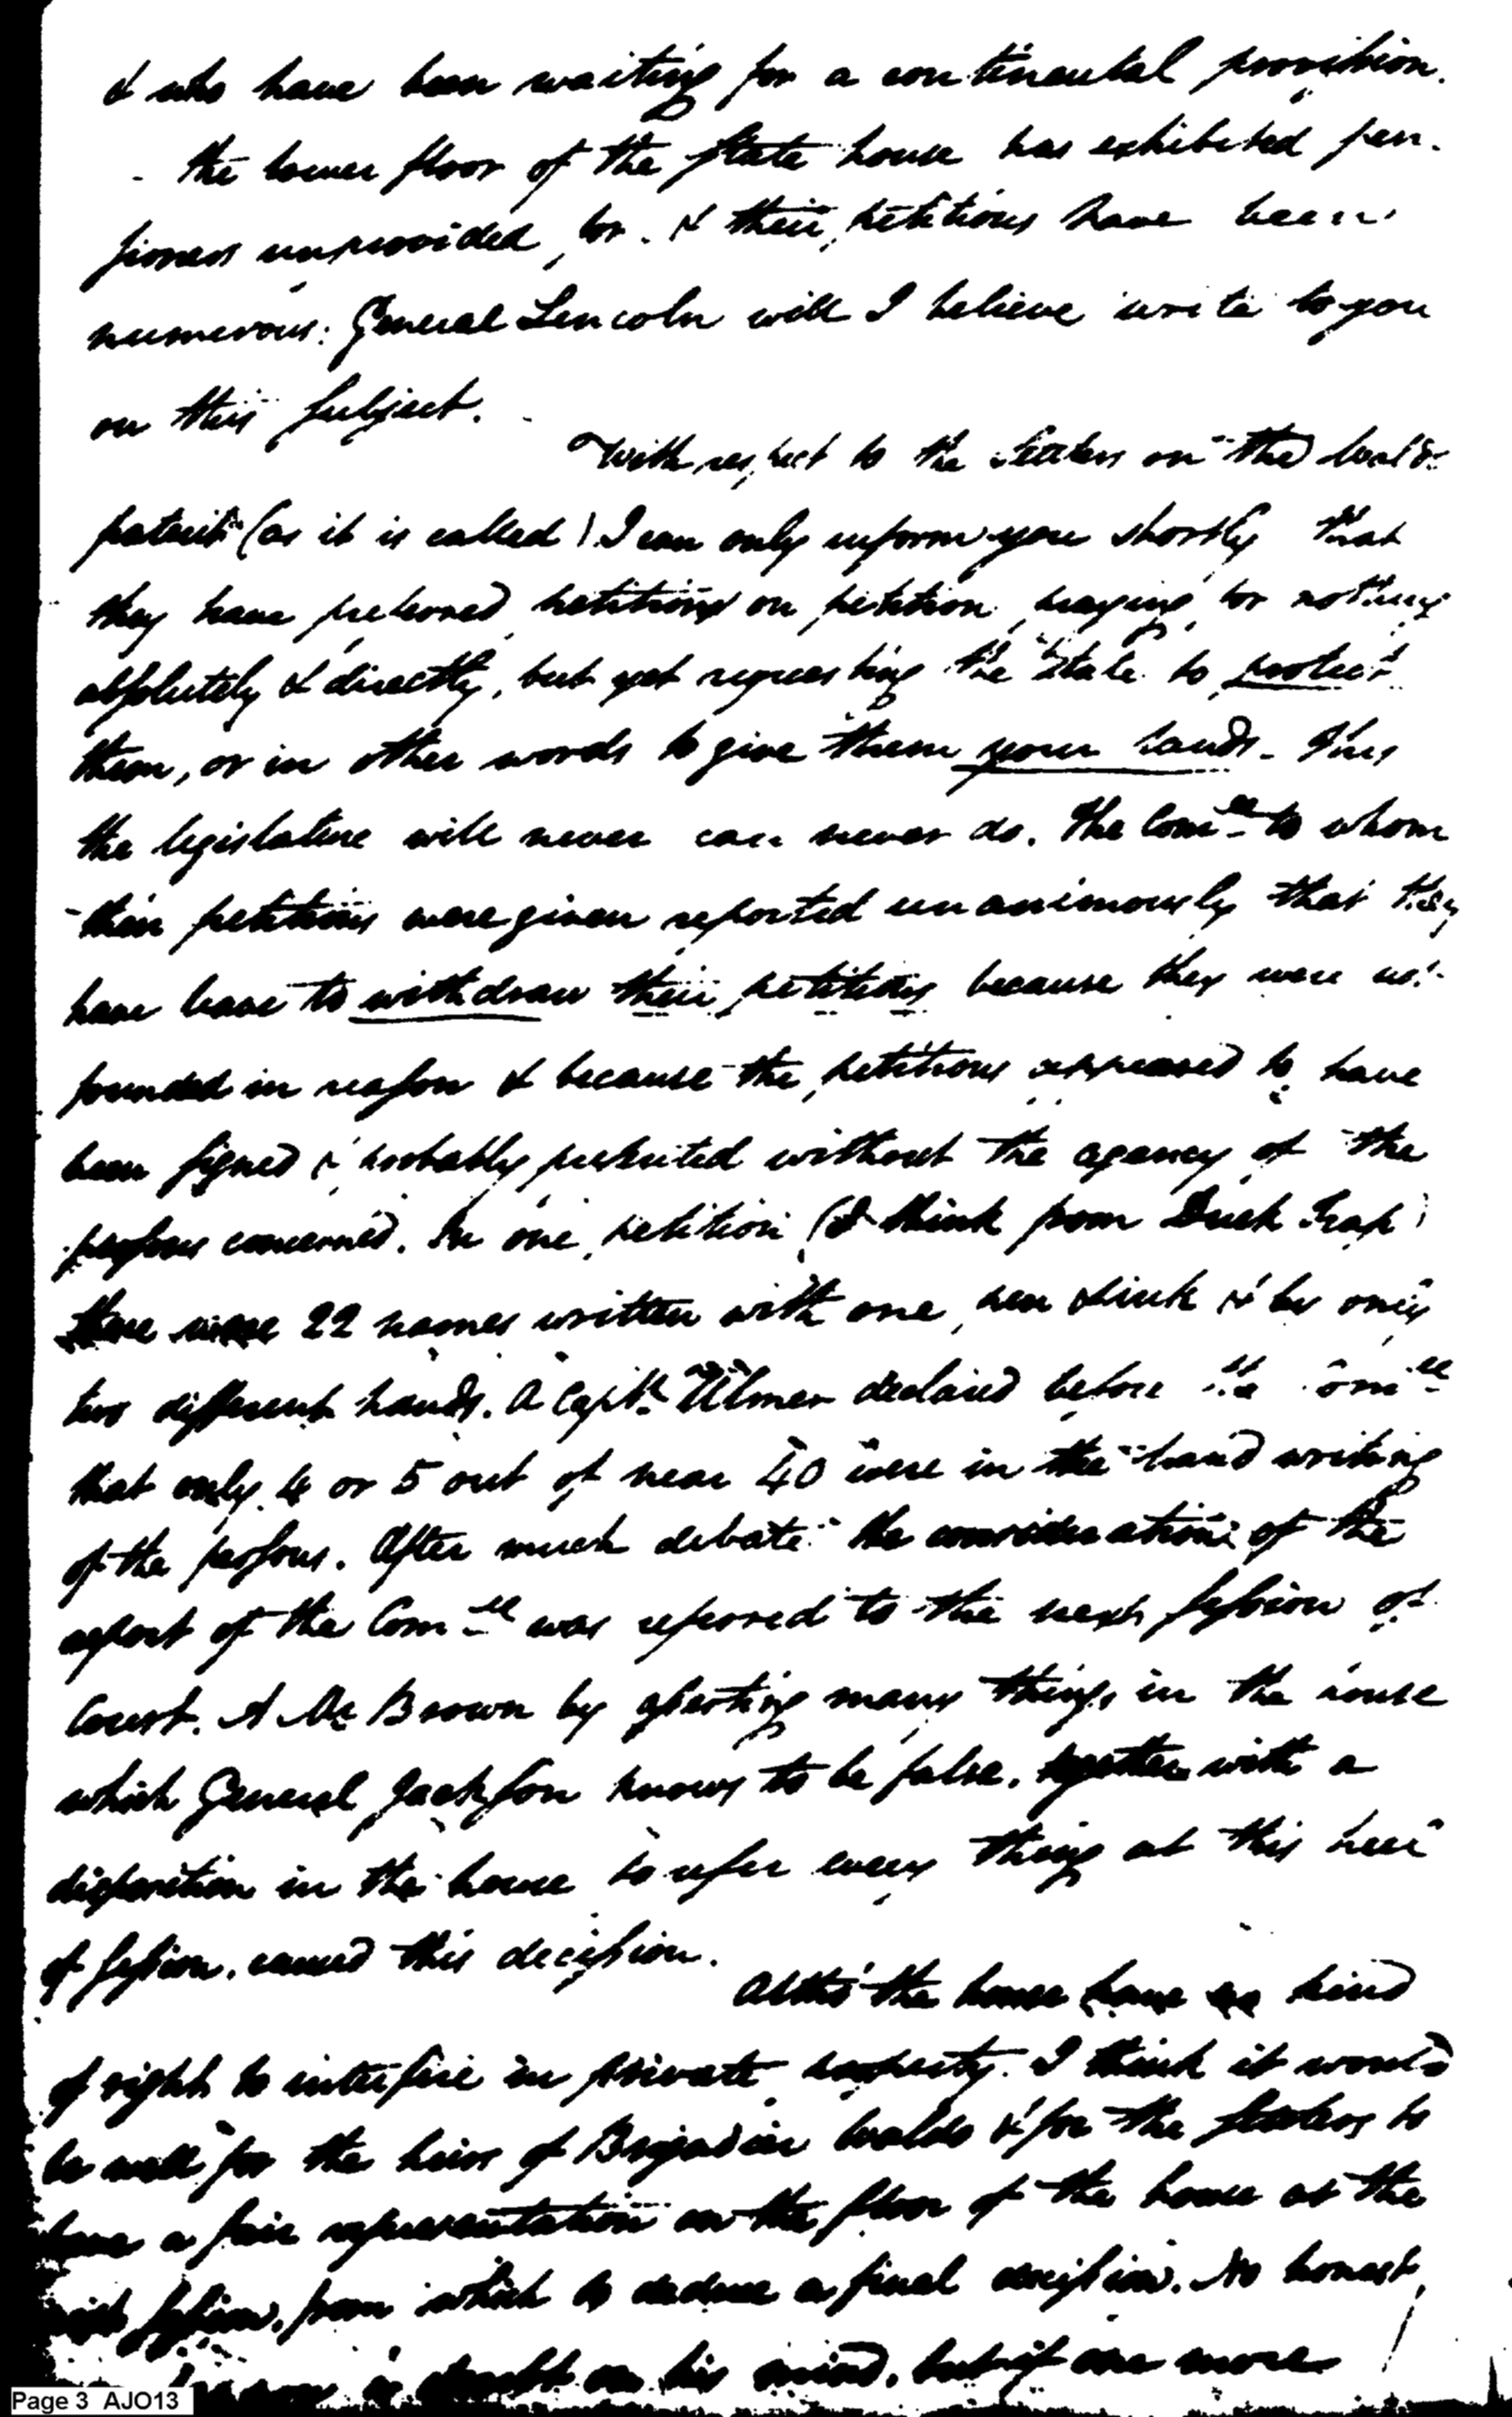 & who have been waiting for a continental provision.
- the lower floor of the State house has exhibited pen-
sioners unprovided for. & their petitions have been
numerous: General Lincoln will I believe write to you
on this subject. -
With respect to the Settlers on the Waldo
patent (as it is called) I can only inform you shortly that
they have preferred petitions or petition praying for nothing
absolutely & directly, but yet requesting the State to protect
them, or in other words to give them your lands - this
the legislature will never can never do. The Comee to whom
their petitions were given reported unanimously that they
have leave to withdraw their petitions because they were not
founded in reason & because the petitions appeared to have
been signed & probably presented without the agency of the
persons concerned. In one petition (I think from Duck Trap)
there were 22 names written with one pen & ink & by only
two different hands. A Capt. Ulmer declared before the Comee
that only 4 or 5 out of near 40 were in the hand writing
of the persons. After much debate the consideration of the
report of the Comee was referred to the next session of
Court. A Mr Brown by asserting many things in the house
which General Jackson knows to be false, together with a
disposition in the house to refer every thing at this
of session, caused this decision.
Altho' the house have no kind
of right to interfere in private property. I think it would
be well for the heirs of Brigadier Waldo & for the settlers to
have a fair representation on the floor of the house at the
session, from which to deduce a final decision. No honest
doubt on his mind, but if one more